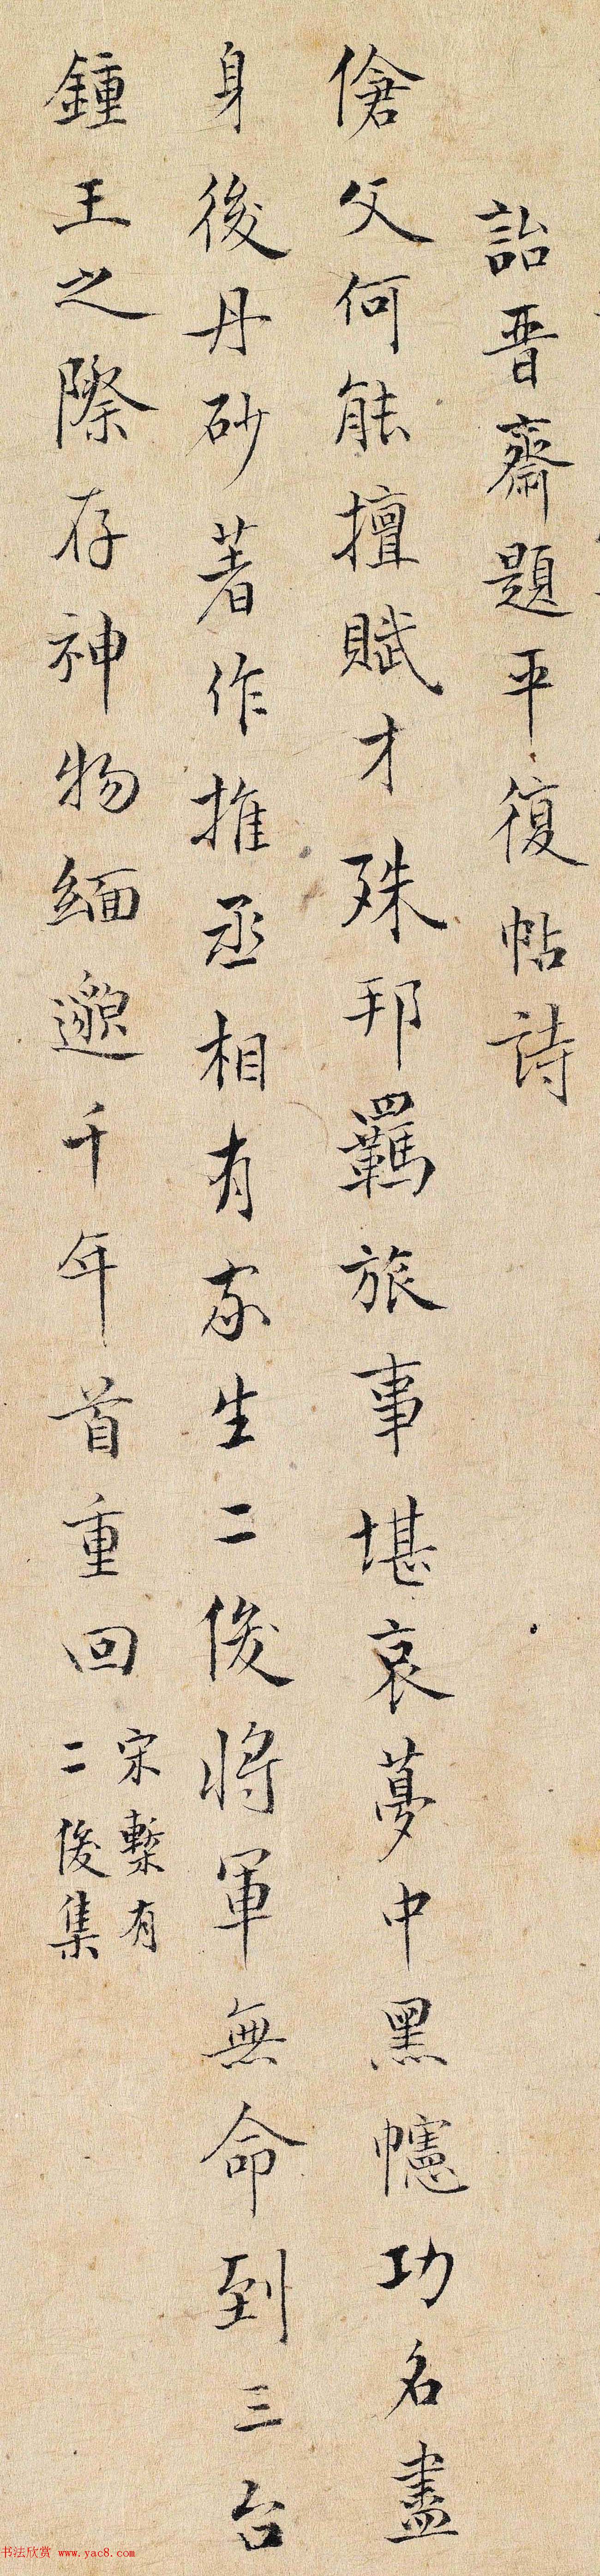 詒晉齋題平復帖詩
傖父何能擅賦才殊邦羈旅事堪哀夢中黑幰功名盡
身後丹砂著作推丞相有家生二俊將軍無命到三台
鍾王之際存神物緬邈千年首重回
宋槧有
二俊集
书法欣赏 www.yac8.com